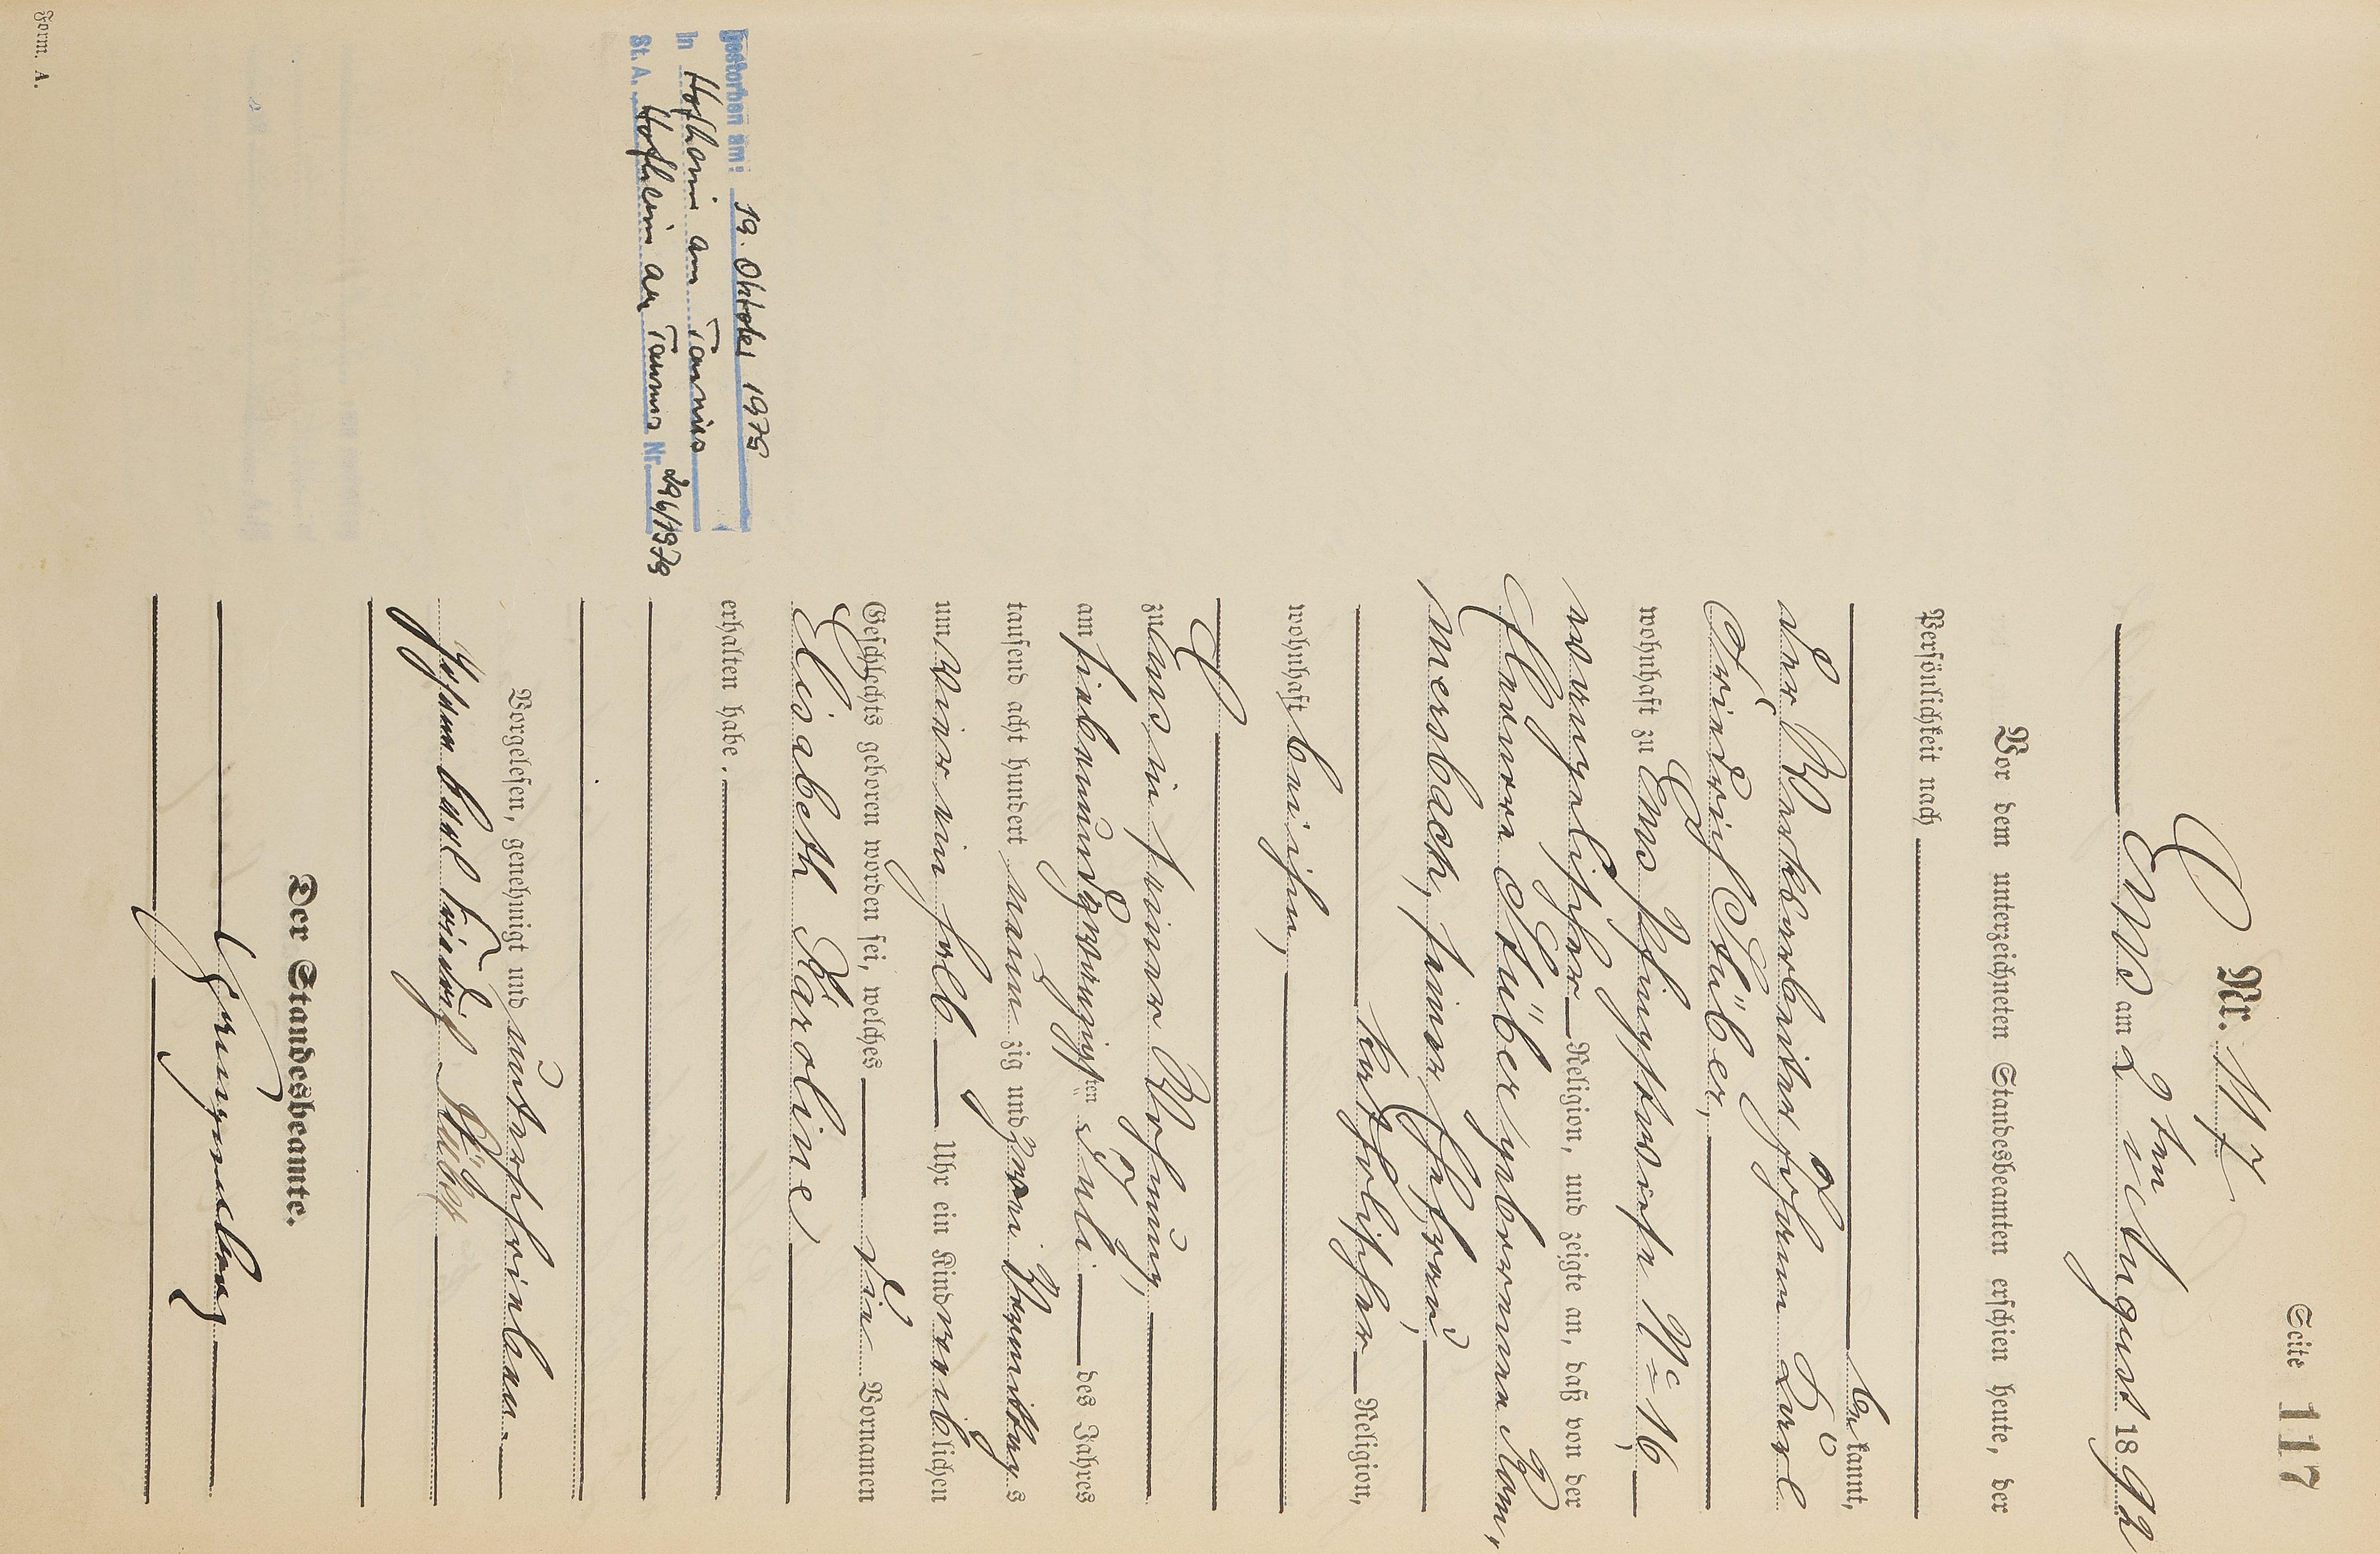 Seite 117
Nr. 117
Ems am 2ten August 1892
Vor dem unterzeichneten Standesbeamten erschien heute, der
Persönlichkeit nach
be kannt,
der Werkarbeiter Johann Karl
Friedrich Stüber,
wohnhaft zu Ems Pfingstwiese No 16,
evangelischer Religion, und zeigte an, daß von der
Stüber geborenen Rom,
mersbach, seiner Ehefrau,
katholischer Religion,
wohnhaft bei ihm,
zu Ems in seiner Wohnung,
am siebenundzwanzigsten Juli des Jahres
tausend acht hundert neun zig und zwei Vormittags
um vier ein halb Uhr ein Kind weiblichen
Geschlechts geboren worden sei, welches die Vornamen
Elisabeth Karoline
erhalten habe.
Vorgelesen, genehmigt und unterschrieben.
Johann Karl Friedrich Stüber
Der Standesbeamte.
Gestorben am: 19. Oktober 1975
in Hofheim am Taunus
St. A. Hofheim am Taunus Nr.
Form. A.